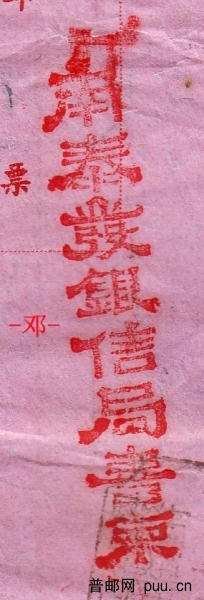 南泰發銀信局書柬
票
-邓-
普邮网 puu.cn